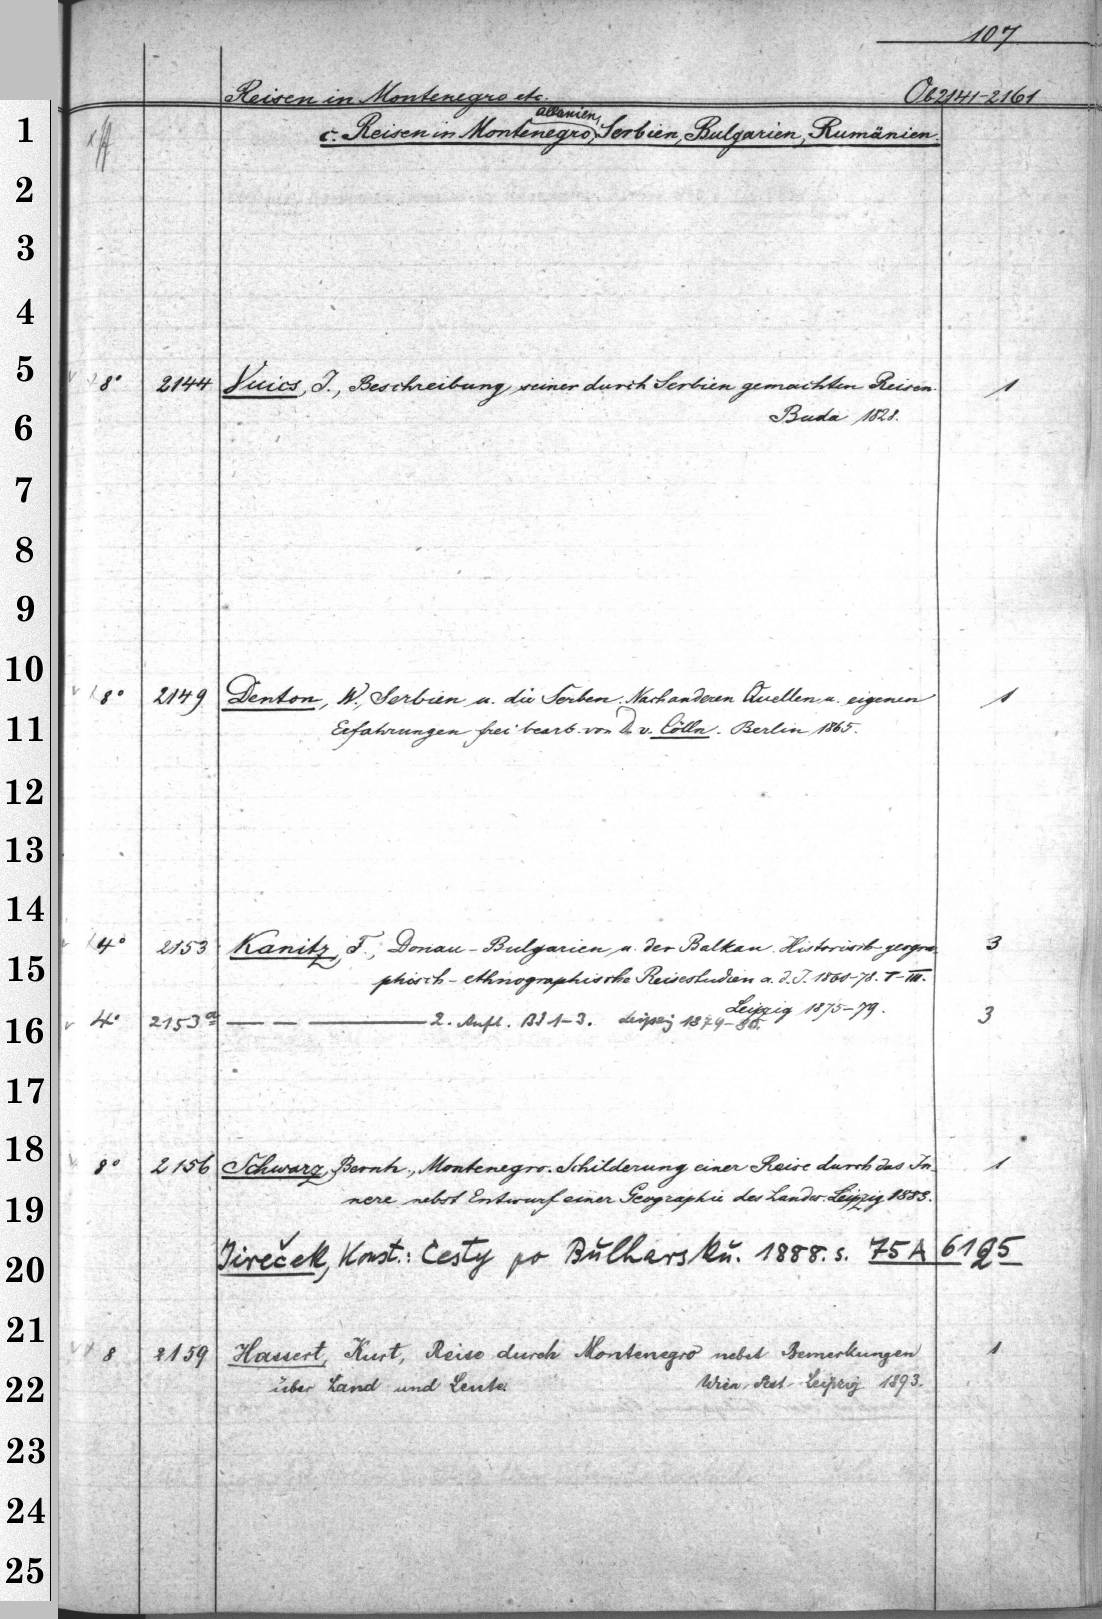 107
Reisen in Montenegro etc. Ob2141-2161
1 c. Reisen in Montenegro, Albanien, Serbien, Bulgarien, Rumänien.
2
3
4
5 8° 2144 Vuics, J., Beschreibung seiner durch Serbien gemachten Reisen. 1
6 Buda 1828.
7
8
9
10 8° 2149 Denton, W., Serbien u. die Serben. Nach anderen Quellen u. eigenen 1
11 Erfahrungen frei bearb. von D. v. Cölln. Berlin 1865.
12
13
14
15 4° 2153 Kanitz, F., Donau-Bulgarien u. der Balkan. Historisch-geogra- 3
phisch-ethnographische Reisestudien a. d. J. 1860-78. I-III.
Leipzig 1875-79.
16 4° 2153a — — — 2. Aufl. Bd 1-3. Leipzig 1879-80. 3
17
18 8° 2156 Schwarz, Bernh., Montenegro. Schilderung einer Reise durch das In- 1
19 nere nebst Entwurf einer Geographie des Landes. Leipzig 1883.
20 Jireček, Konst.: Cesty po Bŭlharskŭ. 1888. s. 75 A 6195
21 8 2159 Hassert, Kurt, Reise durch Montenegro nebst Bemerkungen 1
22 über Land und Leute. Wien, Pest, Leipzig 1893.
23
24
25